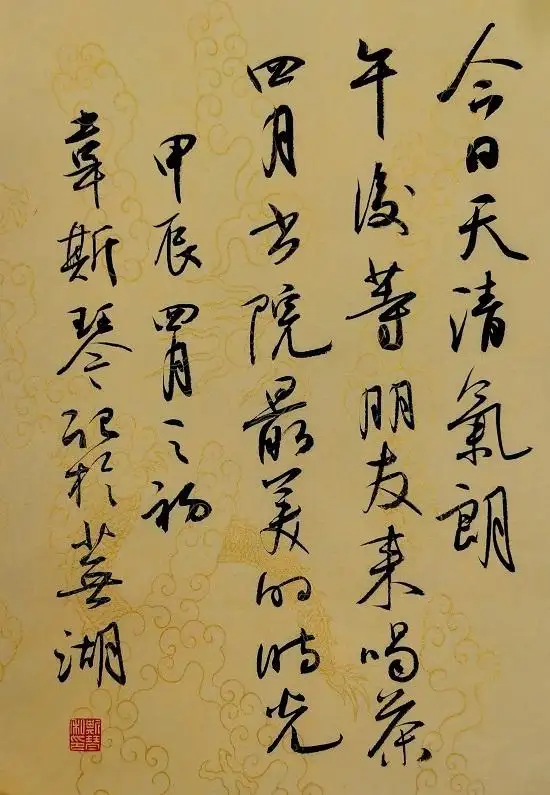 今日天清氣朗
午後等朋友来喝茶
四月书院最美的时光
甲辰四月之初
韋斯琴記於蕪湖